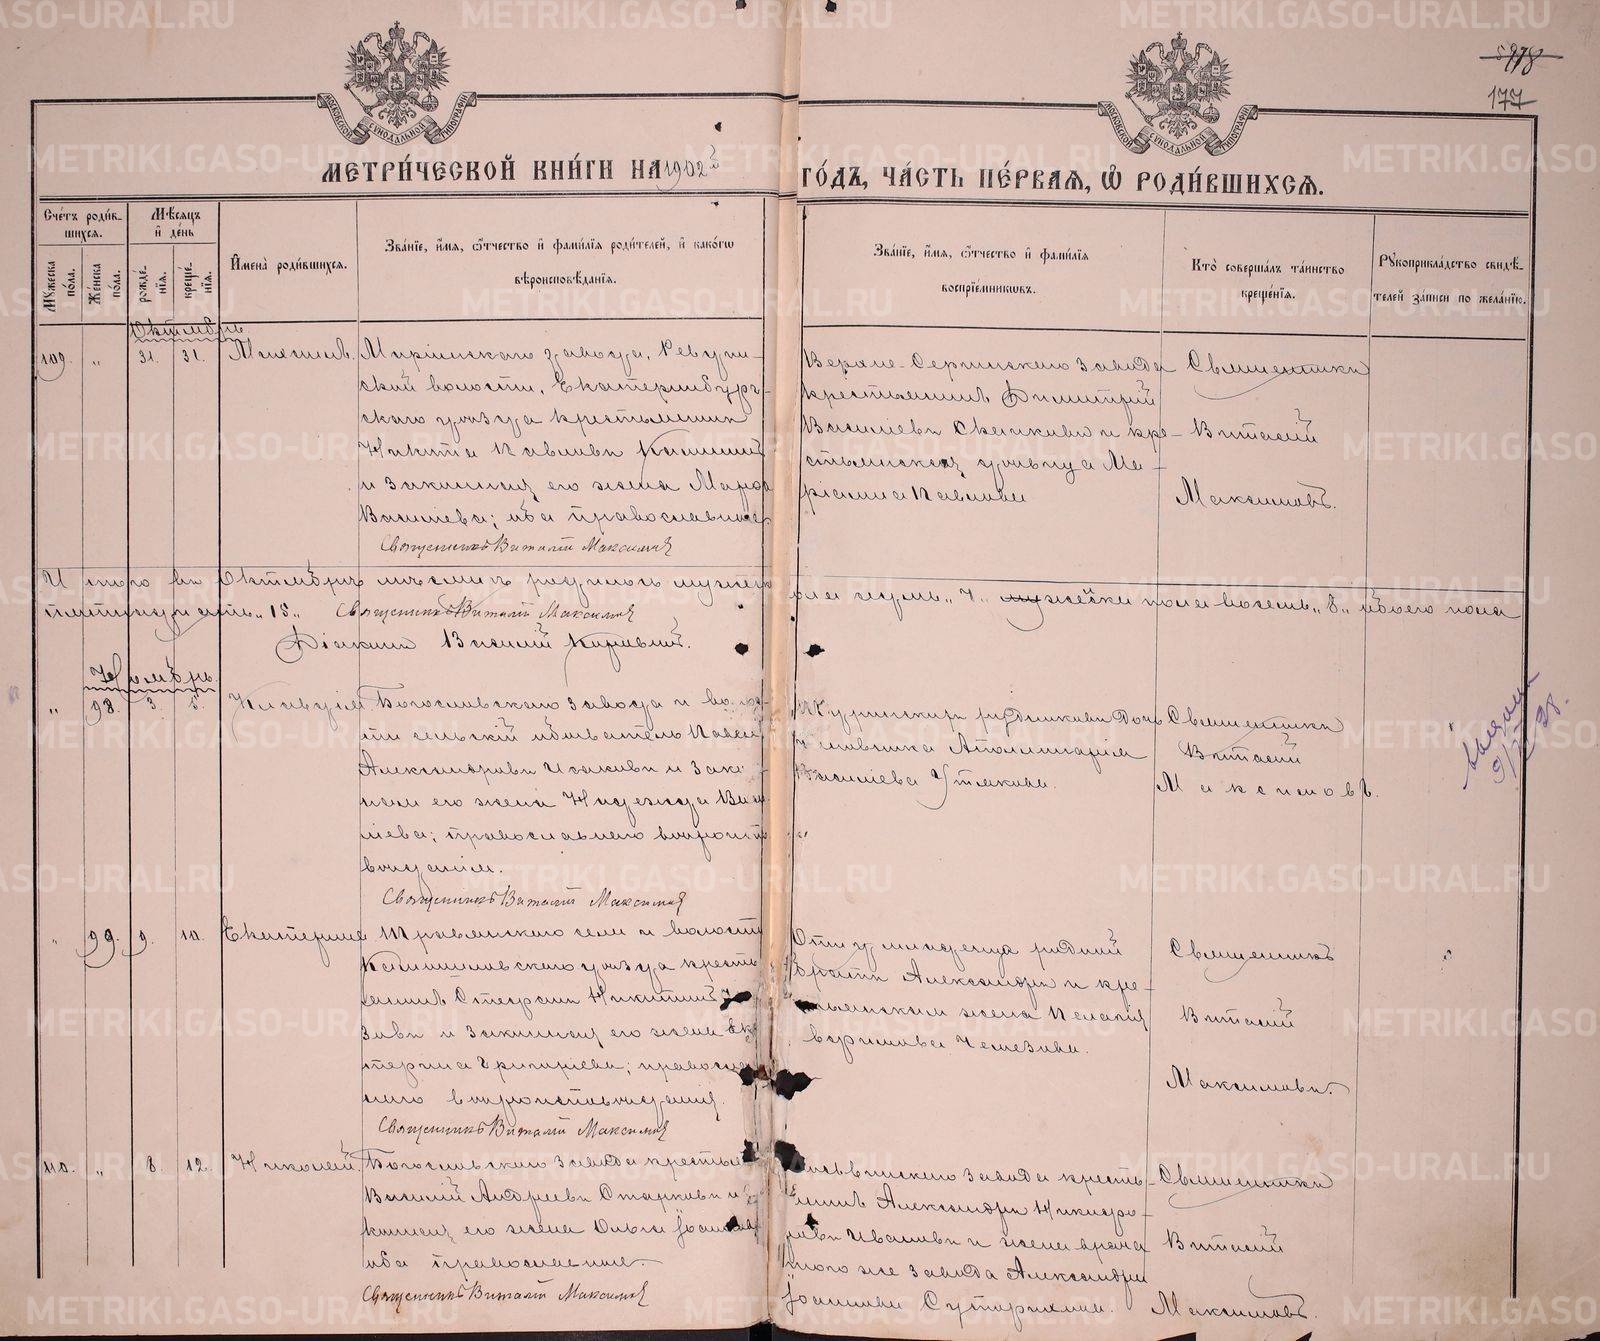 978
177
МОСКОВСКОЙ СУНОДАЛЬНОЙ ТИПОГРАФІИ
МОСКОВСКОЙ СУНОДАЛЬНОЙ ТИПОГРАФІИ
МЕТРИ́ЧЕСКОЙ КНИ́ГИ НА 1902й ГО́ДЪ, ЧА́СТЬ ПЕ́РВАЯ, Ѡ РОДИ́ВШИХСЯ.
Сче́тъ роди́вшихся.
Му́жеска по́ла.
Же́нска по́ла.
Мѣ́сяцъ и де́нь
рожде́нія.
креще́нія.
Имена̀ роди́вшихся.
Зва́ніе, и́мя, ѻ҆́тчество и фами́лія роди́телей, и како́гѡ
вѣроисповѣ́данія.
Зва́ніе, и́мя, ѻ҆́тчество и фами́лія
воспріе́мниковъ.
Кто̀ соверша́лъ та́инство
креще́нія.
Рукоприкла́дство свидѣ́-
телей за́писи по жела́нію.
Октябрь
109. " 31. 31.
Маріинскаго завода, Ревдин-
ской волости, Екатеринбург-
скаго уѣзда крестьянин
Никита Павловъ
и законная его жена Марѳа
Васильева; оба православные
Священникъ Виталій Максимовъ
Верхне-Сергинскаго завода
крестьянинъ Димитрій
Васильевъ и кре-
стьянская дѣвица Ма-
Павлова
Священникъ
Виталій
Максимовъ.
Итого въ Октябрѣ мѣсяцѣ родилось мужска пола семь "7" женска пола восемь "8" обоего пола
пятнадцать "15" Священникъ Виталій Максимовъ
Діаконъ Василій
Ноябрь.
" 98. 3. 5. Клавдія
Богословскаго завода и волос-
ти сельскій обыватель Павелъ
Александровъ и закон-
ная его жена Надежда Васи-
льева; православнаго вѣроиспо-
вѣданія.
Священникъ Виталій Максимовъ
дочь
чиновника Аполлинарія
Васильева
Священникъ
Виталій
Максимовъ.
" 99. 9. 10. Екатерина
Травянскаго села и волости
Камышловскаго уѣзда кресть-
янинъ Стефанъ Никитинъ Че-
зовъ и законная его жена Ека-
терина Григорьева; православ-
наго вѣроисповѣданія.
Священникъ Виталій Максимовъ
Отцу младенца родной
братъ Александръ и кре-
стьянская жена Пелагія
Священникъ
Виталій
Максимовъ.
110. " 8. 12. Николай.
Богословскаго завода крестьян
Василій Андреевъ Старковъ и за-
конная его жена Ольга Іоаннова
оба православные.
Священникъ Виталій Максимовъ
завода кресть-
янинъ Александръ Никифо-
ровъ Ивановъ и жена врача
того же завода Александра
Іоаннова
Священникъ
Виталій
Максимовъ.
METRIKI.GASO-URAL.RU